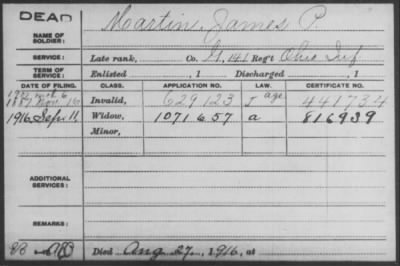 DEAD
NAME OF SOLDIER: Martin, James P.
SERVICE: Late rank, Co. G. 141 Reg't Ohio Inf
TERM OF SERVICE: Enlisted , 1 Discharged , 1
DATE OF FILING. CLASS. APPLICATION NO. LAW. CERTIFICATE NO.
Invalid, 629123 age 441734
1916 Sep. 11 Widow, 1071657 a 816939
Minor,
ADDITIONAL SERVICES:
REMARKS:
Died Aug. 27, 1916, at